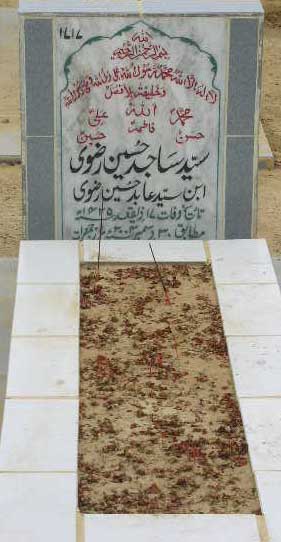 ۱۷۱۷
بسم اللہ الرحمن الرحیم
لا الہ الا اللہ محمد رسول اللہ علی ولی اللہ وصی رسول اللہ
وخلیفتہ بلا فصل
محمد اللہ علی
حسن فاطمہ حسین
سید ساجد حسین رضوی
ابن سید عابد حسین رضوی
تاریخ وفات ۱۷ ذیقعد ۱۴۲۵ھ
مطابق ۳۰ دسمبر ۲۰۰۴ بروز جمعرات